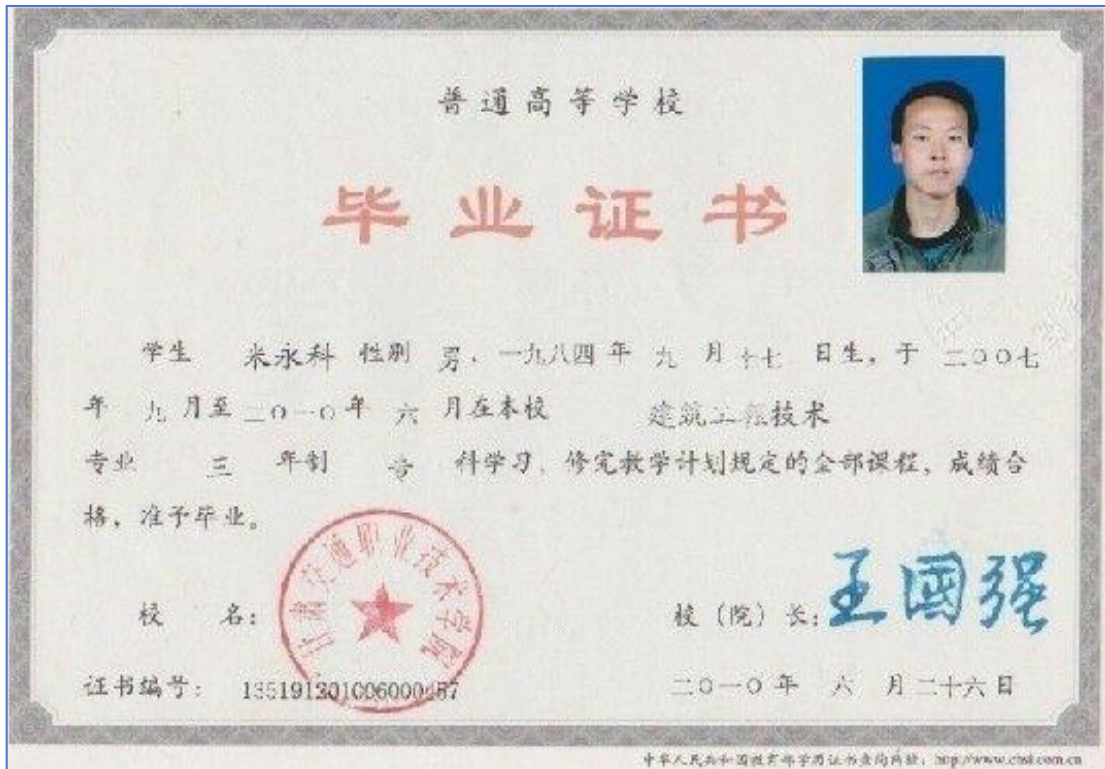 普通高等学校
毕业证书
学生 米永科 性别 男，一九八四年 九 月 十七 日生，于 二〇〇七
年 九 月至 二〇一〇 年 六 月在本校 建筑工程技术
专业 三 年制 专 科学习，修完教学计划规定的全部课程，成绩合
格，准予毕业。
甘肃交通职业技术学院
校 名：
校（院）长：王國强
证书编号：
二〇一〇年 六 月二十六日
中华人民共和国教育部学历证书查询网址：http://www.chsi.com.cn